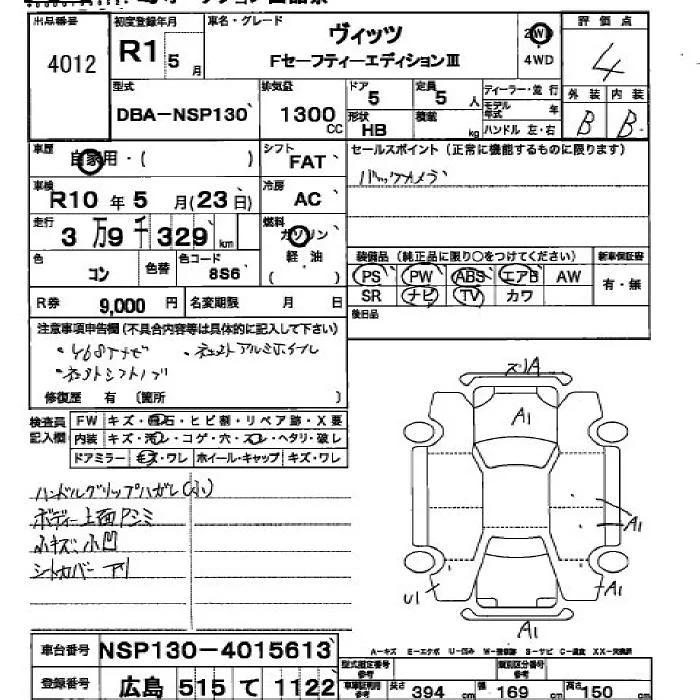 出品番号 初度登録年月 車名・グレード 評価点
4012 R1 5月 ヴィッツ 2WD 4
Fセーフティーエディション Ⅲ 4WD
型式 排気量 ドア 定員 ディーラー・並行 外装 内装
DBA-NSP130 1300CC 5 5人 モデル年式 年 B B
形状 HB 積載 kg ハンドル 左・右
車歴 自家用・( ) シフト FAT セールスポイント(正常に機能するものに限ります)
バックカメラ
車検 R10年5月(23日) 冷房 AC
走行 3万9千329km 燃料 ガソリン
軽油
( )
装備品(純正品に限り○をつけてください) 新車保証書
色 コン 色替 色コード 8S6 PS PW ABS エアB AW 有・無
R券 9,000円 名変期限 月 日 SR ナビ TV カワ
後日品
注意事項申告欄(不具合内容等は具体的に記入して下さい)
修復歴 有 (箇所 )
検査員記入欄 FW キズ・飛石・ヒビ割・リペア跡・X要
内装 キズ・汚レ・コゲ・穴・スレ・ヘタリ・破レ
ドアミラー キズ・ワレ ホイール・キャップ キズ・ワレ
ハンドルグリップハガレ(小)
ボディー上面Pシミ
小キズ、小凹
シートカバーアリ
スリA
A1
A1
U1
A1
A1
車台番号 NSP130-4015613
A-キズ E-エクボ U-凹み S-サビ C-腐食
登録番号 広島 515 て 1122
型式指定番号 類別区分番号
長さ 394cm 幅 169cm 高さ 150cm